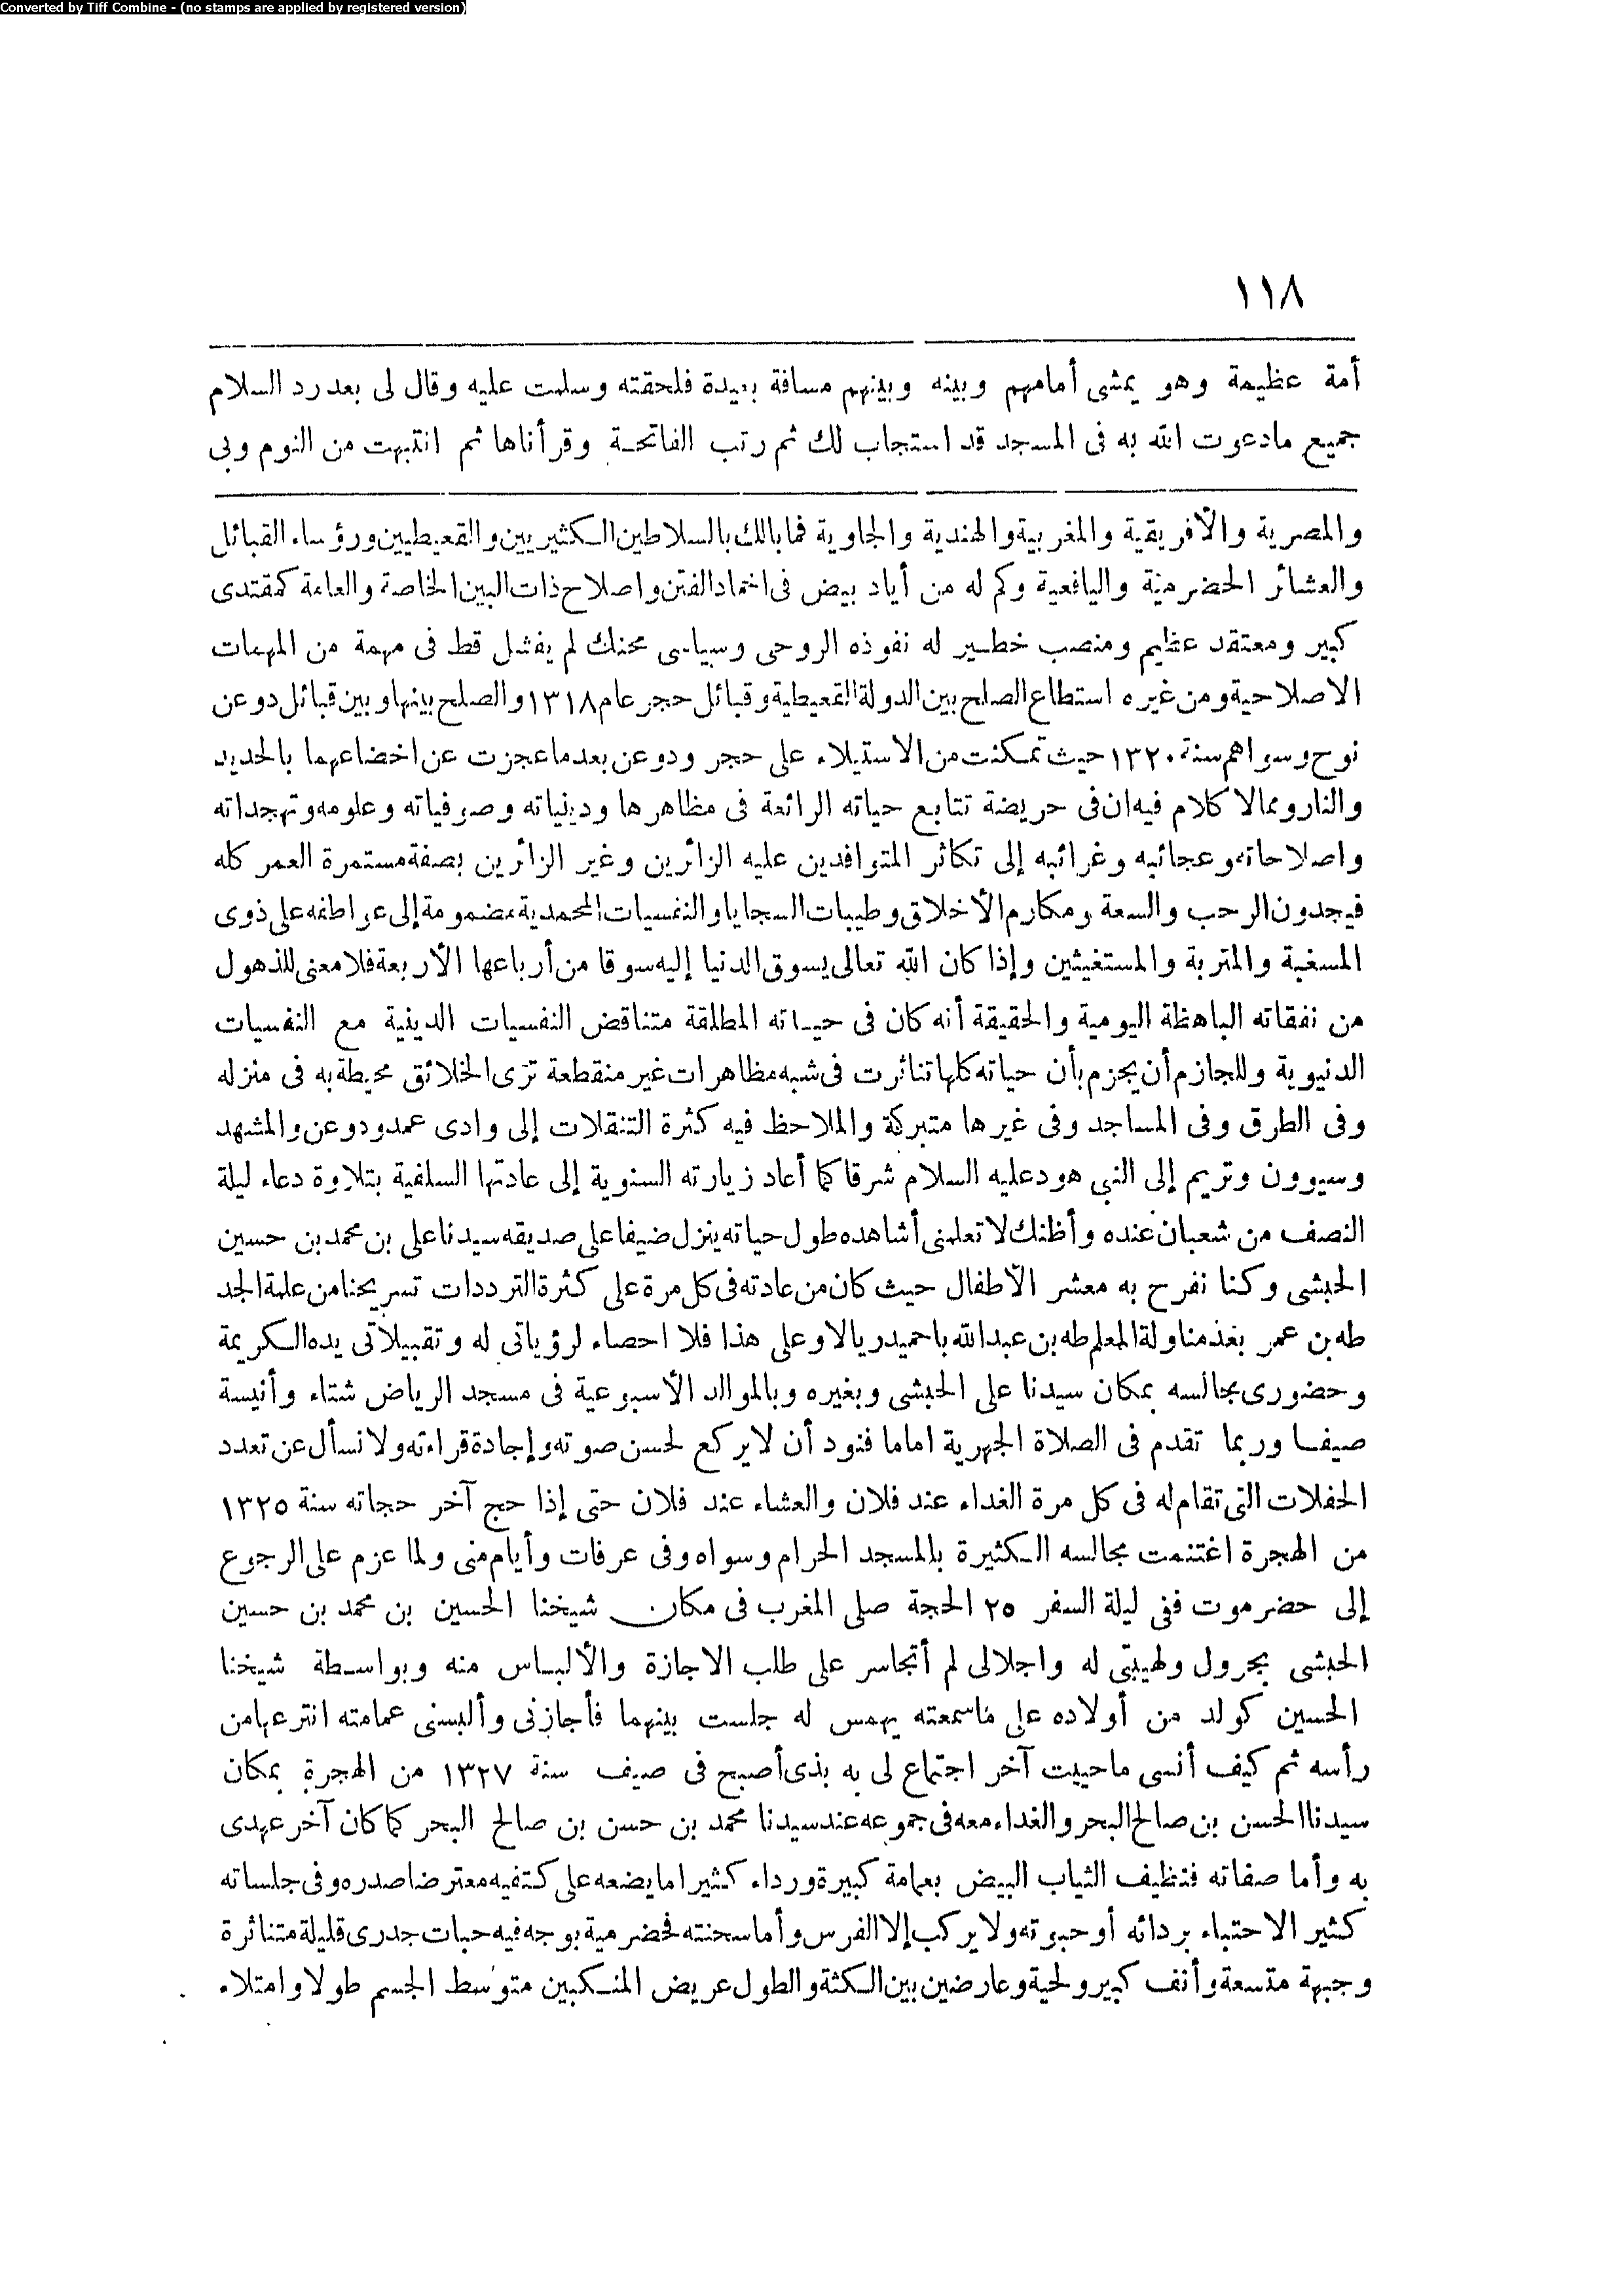 Converted by Tiff Combine - (no stamps are applied by registered version)
١١٨
أمة عظيمة وهو يمشى أمامهم وبينه وبينهم مسافة بعيدة فلحقته وسلمت عليه وقال لى بعد رد السلام
جميع مادعوت الله به فى المسجد قد استجاب لك ثم رتب الفاتحة وقرأناها ثم انتبهت من النوم وبى
والمصرية والأفريقية والمغربية والهندية والجاوية فما بالك بالسلاطين الكثيريين والقعيطيين ورؤساء القبائل
والعشائر الحضرمية واليافعية وكم له من أياد بيض فى اخماد الفتن واصلاح ذات البين الخاصة والعامة كمقتدى
كبير ومعتقد عظيم ومنصب خطير له نفوذه الروحى وسياسى محنك لم يفشل قط فى مهمة من المهمات
الاصلاحية ومن غيره استطاع الصلح بين الدولة القعيطية وقبائل حجر عام ١٣١٨ والصلح بينها وبين قبائل دوعن
نوح وسواهم سنة ١٣٢٠ حيث تمكنت من الاستيلاء على حجر ودوعن بعد ما عجزت عن اخضاعهما بالحديد
والنار ومما لا كلام فيه ان فى حريضة تتابع حياته الرائعة فى مظاهرها ودينياته وصوفياته وعلومه وتهجداته
واصلاحاته وعجائبه وغرائبه إلى تكاثر المتوافدين عليه الزائرين وغير الزائرين بصفة مستمرة العمر كله
فيجدون الرحب والسعة ومكارم الأخلاق وطيبات السجايا والنفسيات المحمدية مضمومة إلى عواطفه على ذوى
المسغبة والمتربة والمستغيثين وإذا كان الله تعالى يسوق الدنيا إليه سوقا من أرباعها الأربعة فلا معنى للذهول
من نفقاته الباهظة اليومية والحقيقة أنه كان فى حياته المطلقة متناقض النفسيات الدينية مع النفسيات
الدنيوية وللجازم أن يجزم بأن حياته كلها تناثرت فى شبه مظاهرات غير منقطعة ترى الخلائق محيطة به فى منزله
وفى الطرق وفى المساجد وفى غيرها متبركة والملاحظ فيه كثرة التنقلات إلى وادى عمد ودوعن والمشهد
وسيوون وتريم إلى النبى هود عليه السلام شرقا كما أعاد زيارته السنوية إلى عادتها السلفية بتلاوة دعاء ليلة
النصف من شعبان عنده وأظنك لا تعلمنى أشاهده طول حياته ينزل ضيفا على صديقه سيدنا على بن محمد بن حسين
الحبشى وكنا نفرح به معشر الأطفال حيث كان من عادته فى كل مرة على كثرة الترددات تسريحنا من علمة الجد
طه بن عمر بغذ مناولة المعلم طه بن عبدالله باحميد ريالا وعلى هذا فلا احصاء لرؤياتى له وتقبيلاتى يده الكريمة
وحضورى مجالسه بمكان سيدنا على الحبشى وبغيره وبالموالد الأسبوعية فى مسجد الرياض شتاء وأنيسة
صيفا وربما تقدم فى الصلاة الجهرية اماما فنود أن لا يركع لحسن صوته وإجادة قراءته ولا نسأل عن تعدد
الحفلات التى تقام له فى كل مرة الغداء عند فلان والعشاء عند فلان حتى إذا حج آخر حجاته سنة ١٣٢٥
من الهجرة اغتنمت مجالسه الكثيرة بالمسجد الحرام وسواه وفى عرفات وأيام منى ولما عزم على الرجوع
إلى حضرموت ففى ليلة السفر ٢٥ الحجة صلى المغرب فى مكان شيخنا الحسين بن محمد بن حسين
الحبشى بجرول ولهيبتى له واجلالى لم أتجاسر على طلب الاجازة والألباس منه وبواسطة شيخنا
الحسين كولد من أولاده على ماسمعته يهمس له جلست بينهما فأجازنى وألبسنى عمامته انتزعها من
رأسه ثم كيف أنسى ماحييت آخر اجتماع لى به بذى أصبح فى صيف سنة ١٣٢٧ من الهجرة بمكان
سيدنا الحسن بن صالح البحر والغداء معه فى جموعه عند سيدنا محمد بن حسن بن صالح البحر كما كان آخر عهدى
به وأما صفاته فنظيف الثياب البيض بعمامة كبيرة ورداء كثيرا ما يضعه على كتفيه معترضا صدره وفى جلساته
كثير الاحتباء بردائه أو حبوته ولا يركب إلا الفرس وأما سحنته فحضرمية بوجه فيه حبات جدرى قليلة متناثرة
وجبهة متسعة وأنف كبير ولحية وعارضين بين الكثة والطول عريض المنكبين متوسط الجسم طولا وامتلاء